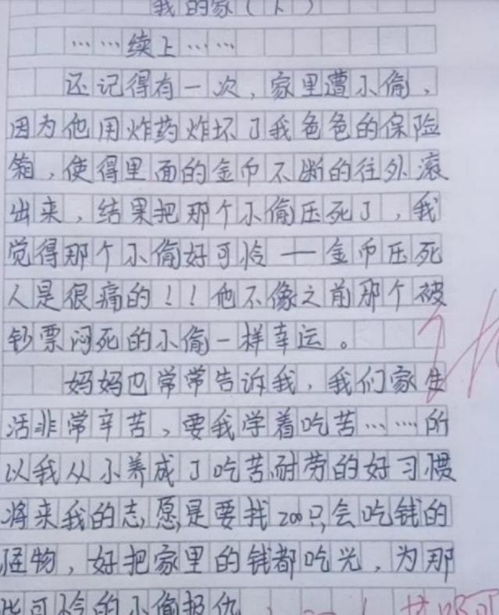 我的家（下）
……续上……
还记得有一次，家里遭小偷，
因为他用炸药炸坏了我爸爸的保险
箱，使得里面的金币不断的往外滚
出来，结果把那个小偷压死了，我
觉得那个小偷好可怜——金币压死
人是很痛的！！他不像之前那个被
钞票闷死的小偷一样幸运。
妈妈也常常告诉我，我们家生
活非常辛苦，要我学着吃苦……所
以我从小养成了吃苦耐劳的好习惯
将来我的志愿是要找200只会吃钱的
怪物，好把家里的钱都吃光，为那
些可怜的小偷报仇